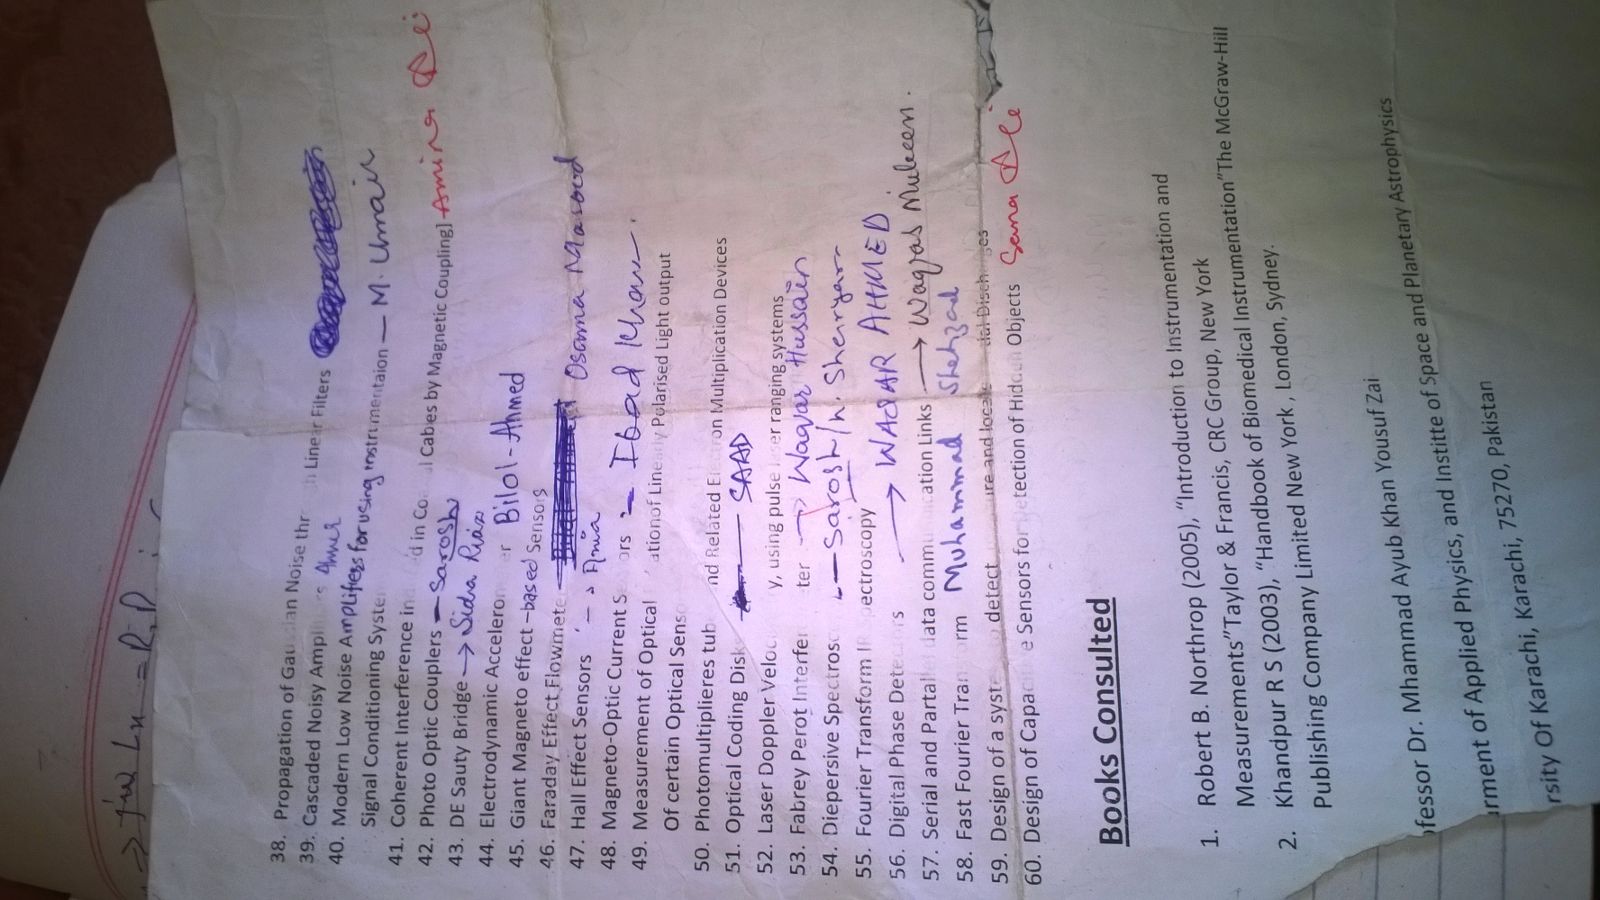 → jω Lx = R, D
38. Propagation of Gaussian Noise through Linear Filters
39. Cascaded Noisy Amplifiers Ahmer
40. Modern Low Noise Amplifiers for using instrumentaion — M. Umair
Signal Conditioning Syste
41. Coherent Interference in d in Coaxial Cables by Magnetic Coupling] - Amina Ali
42. Photo Optic Couplers — Sarosh
43. DE Sauty Bridge → Sidra Riaz
44. Electrodynamic Accelerometer Bilal-Ahmed
45. Giant Magneto effect -based Sensors
46. Faraday Effect Flowmete Osama Masood
47. Hall Effect Sensors -→ Ania
48. Magneto-Optic Current Sensors :- Ibad Khan.
49. Measurement of Optical ationof Linearly Polarised Light output
Of certain Optical Senso
50. Photomultiplieres tub nd Related Electron Multiplication Devices
51. Optical Coding Disk — SAAD
52. Laser Doppler Velocimetry, using pulse laser ranging systems
53. Fabrey Perot Interferometer → Waqar Hussain
54. Diepersive Spectrosc — Sarosh/h. Sherryar
55. Fourier Transform IR Spectroscopy
56. Digital Phase Detectors → WAQAR AHMED
57. Serial and Partallel data communication Links → Waqas Mubeen.
58. Fast Fourier Transform Muhammad Shehzad
59. Design of a system to detect ure and locate tial Discharges
60. Design of Capacitive Sensors for Detection of Hidden Objects Sana Ali
Books Consulted
1. Robert B. Northrop (2005), “Introduction to Instrumentation and
Measurements”Taylor & Francis, CRC Group, New York
2. Khandpur R S (2003), “Handbook of Biomedical Instrumentation”The McGraw-Hill
Publishing Company Limited New York , London, Sydney.
ofessor Dr. Mhammad Ayub Khan Yousuf Zai
rment of Applied Physics, and Institte of Space and Planetary Astrophysics
rsity Of Karachi, Karachi, 75270, Pakistan